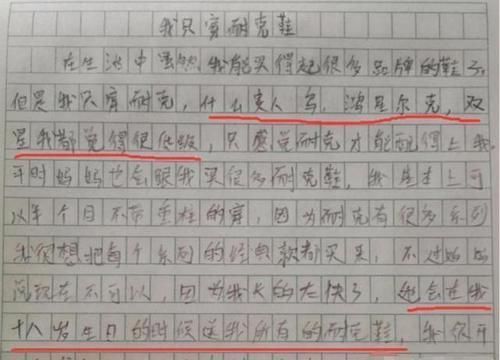 我只穿耐克鞋
在生活中虽然我能买得起很多品牌的鞋子
但是我只穿耐克，什么安人马，鸿星尔克，双
星我都觉得很低级，只感觉耐克才能配得上我
平时妈妈也会跟我买很多耐克鞋，我基本上可
以每个月不带重样的穿，因为耐克有很多系列
我很想把每个系列的经典款都买来，不过妈妈
说现在不可以，因为我长的太快了，她会在我
十八岁生日的时候送我所有的耐克鞋，我很开